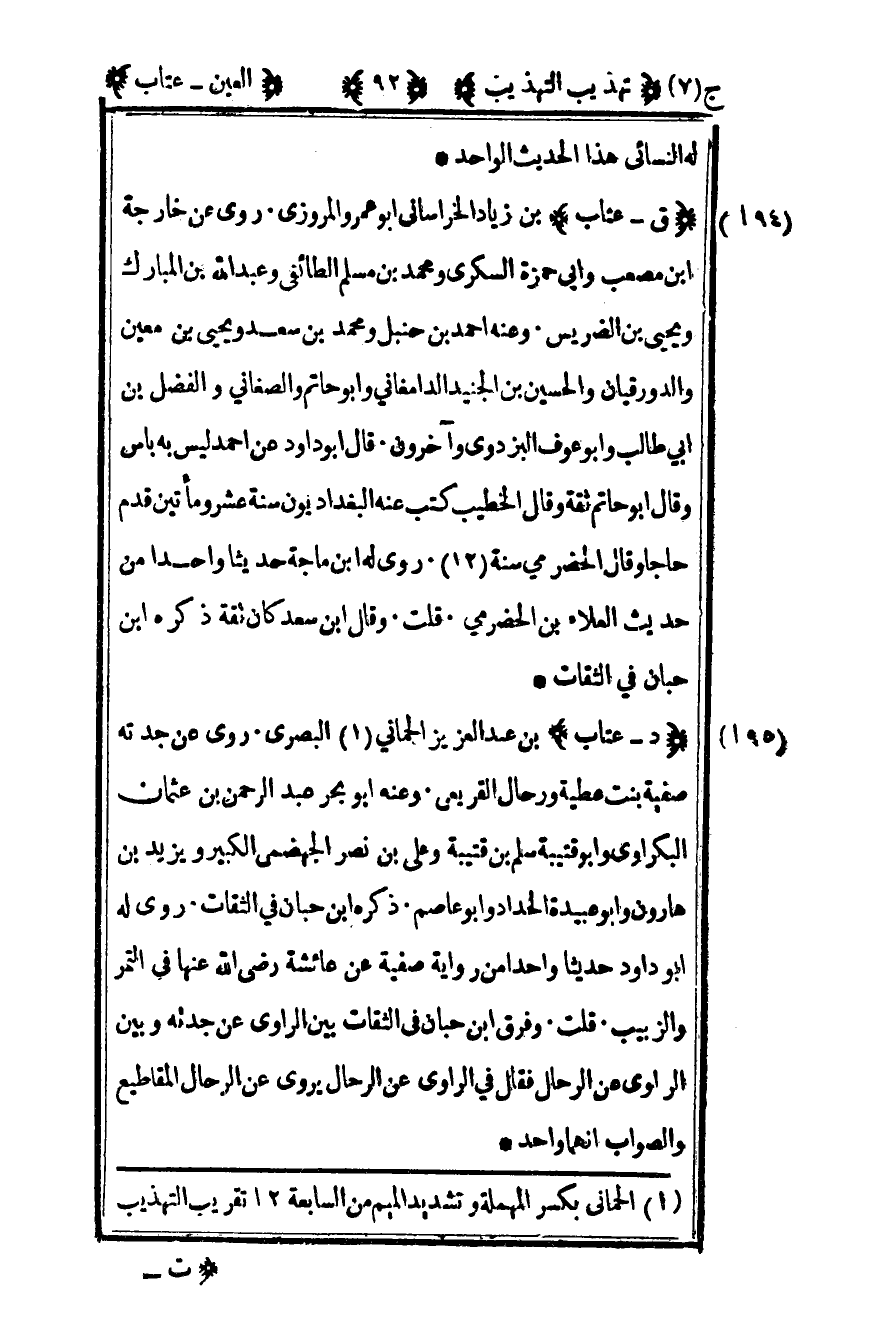 ج(٧) ﴿ تهذيب التهذيب ﴾ ﴿ ٩٢ ﴾ ﴿ العين ـ عتاب ﴾
له النسائى هذا الحديث الواحد •
(١٩٤) ﴿ ق ـ عتاب ﴾ بن زياد الخراسانى ابو عمرو المروزى ٠ روى عن خارجة
ابن مصعب وابي حمزة السكرى ومحمد بن مسلم الطائفى وعبدالله بن المبارك
ويحيى بن الضريس ٠ وعنه احمد بن حنبل ومحمد بن سعـد ويحيى بن معين
والدورقيان والحسين بن الجنيد الدامغاني وابو حاتم والصغاني و الفضل بن
ابي طالب وابو عوف البزدوى وآخرون ٠ قال ابو داود عن احمد ليس به باس
وقال ابو حاتم ثقة وقال الخطيب كتب عنه البغداديون سنة عشر ومأتين قدم
حاجا وقال الحضرمي سنة (١٢) ٠ روى له ابن ماجة حديثا واحـدا من
حديث العلاء بن الحضرمي ٠ قلت ٠ وقال ابن سعد كان ثقة ذكره ابن
حبان في الثقات •
(١٩٥) ﴿ د ـ عتاب ﴾ بن عبدالعزيز الحماني (١) البصرى ٠ روى عن جدته
صفية بنت عطية ورحال القريعى ٠ وعنه ابو بحر عبد الرحمن بن عثمان
البكراوى وابو قتيبة سلم بن قتيبة وعلى بن نصر الجهضمى الكبير ويزيد بن
هارون وابو عبيدة الحداد وابو عاصم ٠ ذكره ابن حبان في الثقات ٠ روى له
ابو داود حديثا واحدا من رواية صفية عن عائشة رضى الله عنها في التمر
والزبيب ٠ قلت ٠ وفرق ابن حبان فى الثقات بين الراوى عن جدته و بين
الراوى عن الرحال فقال في الراوى عن الرحال يروى عن الرحال المقاطيع
والصواب انهما واحد •
(١) الحمانى بكسر المهملة و تشديد الميم من السابعة ١٢ تقريب التهذيب
﴿ ت ـ